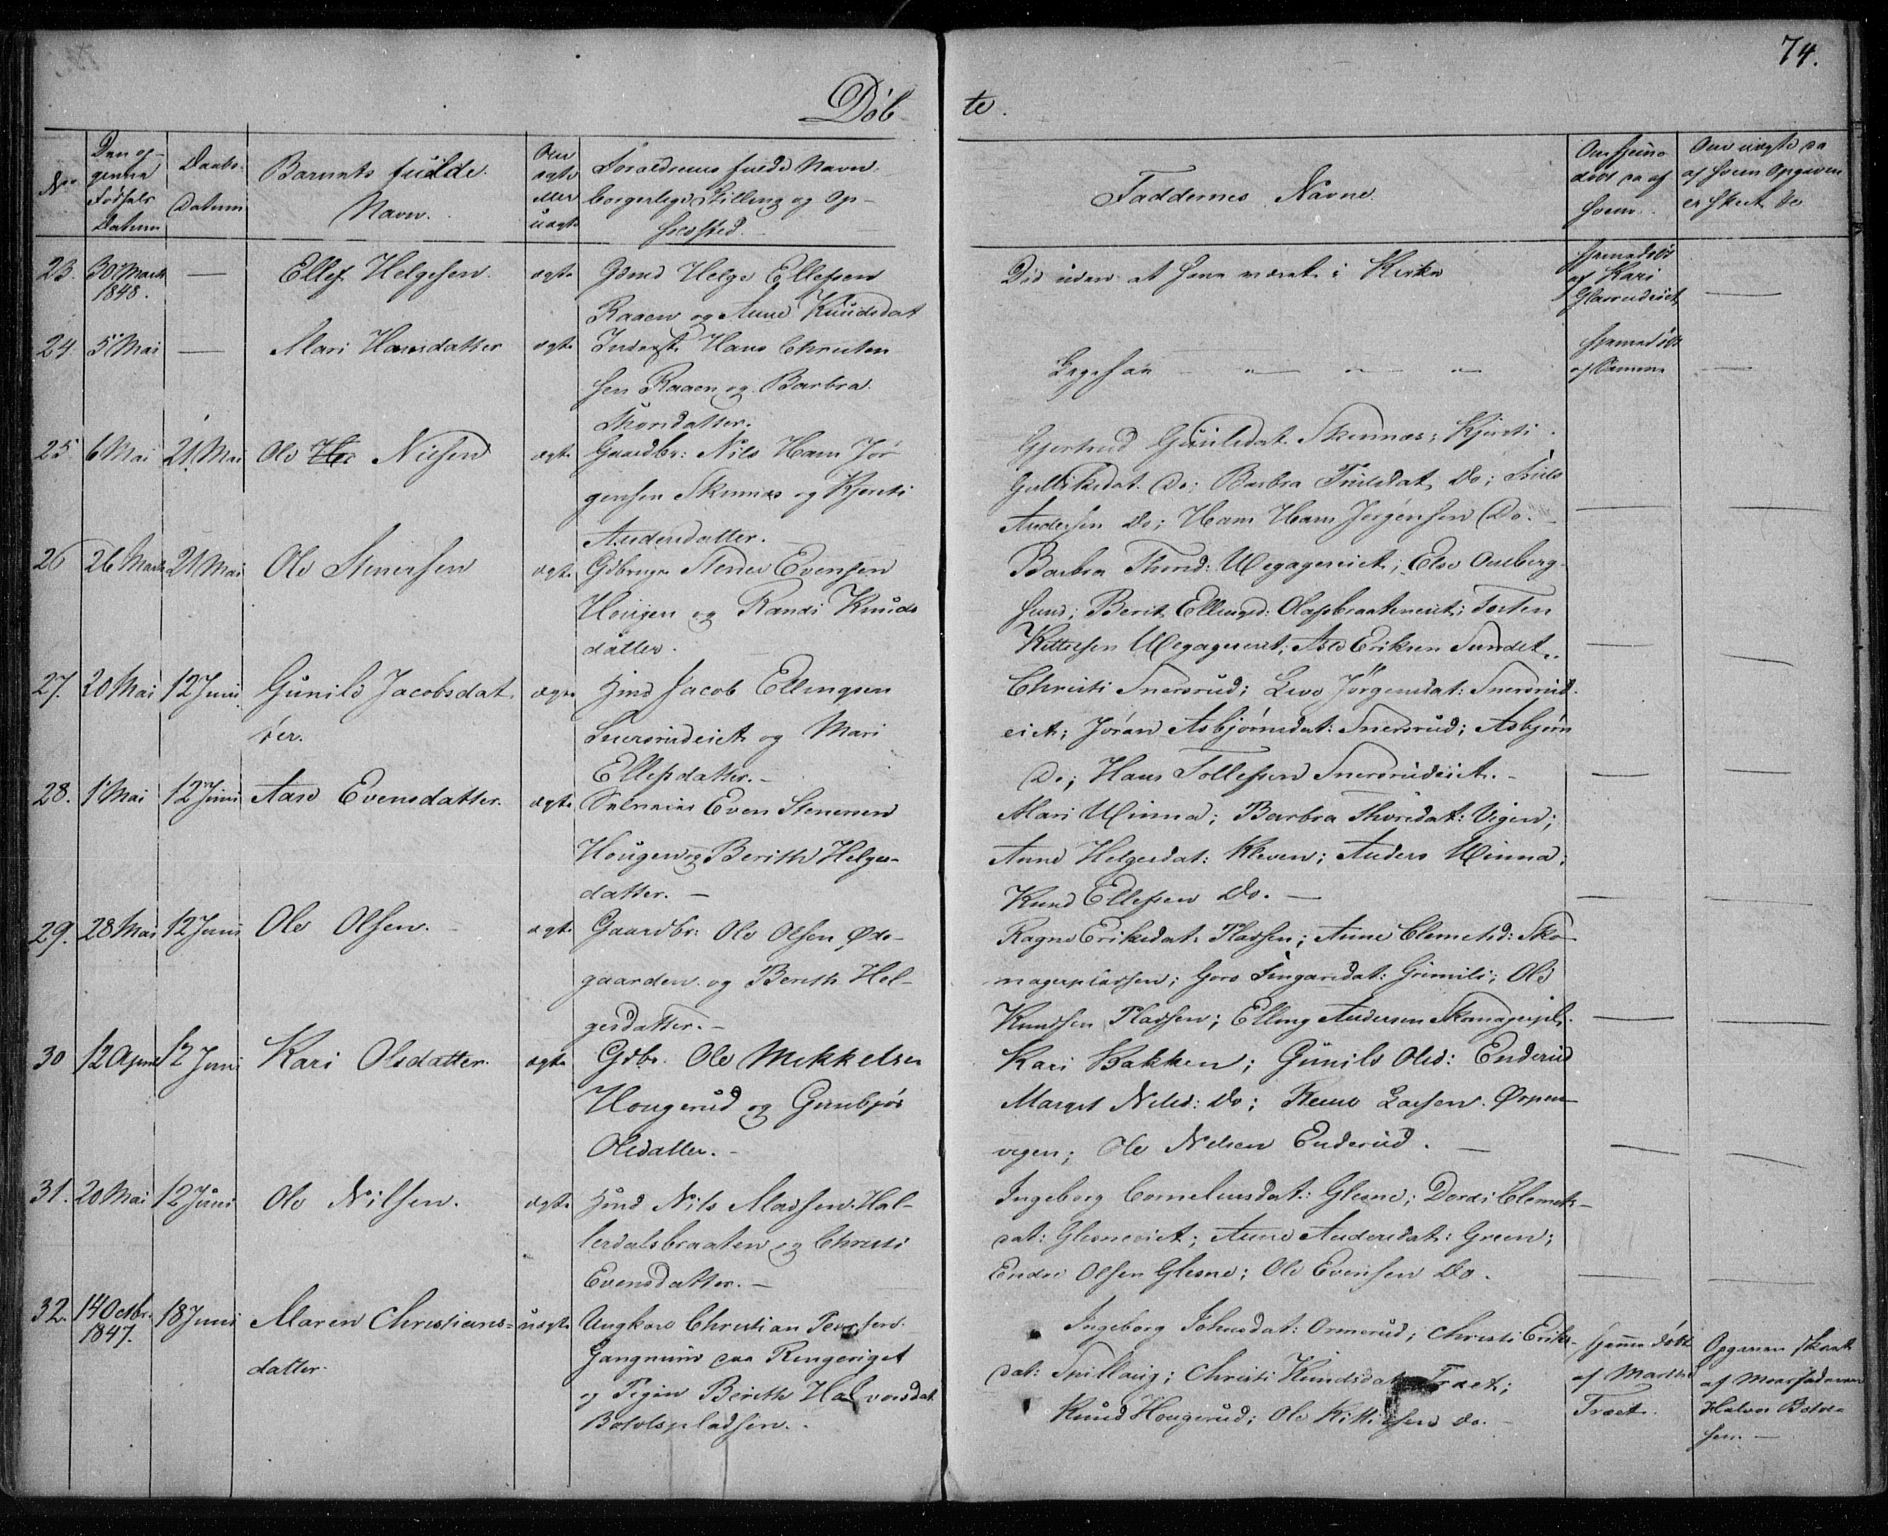 74.
Døbte.
No
Den opgivne Fødsels Datum
Daabs Datum
Barnets fulde Navn.
Om ægte eller uægte
Forældrenes fulde Navn, borgerlige Stilling og Opholdsted.
Faddernes Navne.
Om hjemmedøbt og af hvem.
Om uægte da af hvem Opgaven er skeet
23. 30 Marts 1848. — Ellef Helgesen. ægte
Gbmd Helge Ellefsen
Raaen og Anne Knudsdat
Død uden at have været i Kirke
Hjemmedøbt
af Kari
—
24. 5 Mai — Mari Hansdatter ægte
Inderst Hans Christen
sen Raaen og Barbra
Thorsdatter.
Ligesaa — " — " — " —
Hjemmedøbt
af
—
25. 6 Mai 21 Mai Ole Nilsen ægte
Gaardbr: Nils Hans Jør
gensen Skinnes og Kjersti
Andersdatter.
Gjertrud Gunilsdat. Skinnes; Kjersti
Gulliksdat. Do; Barbra Trulsdat. Do; Truls
Andersen Do; Hans Hans Jørgensen Do.
26 26 Marts 21 Mai Ole Stenersen ægte
Gdbruger Stener Evensen
Hougen og Randi Knuds
datter.
Barbra Thord: ; Else
sund; Berit Ellingsd: Olafsbraateneiet; Torsten
Kittilsen ; Asle Eriksen Sundet.
27. 20 Mai 12 Juni Gunild Jacobsdat
ter. ægte
Hmd Jacob Ellingsen
Snersrudeiet og Mari
Ellefsdatter. —
Christi Snersrud; Live Jørgensdat: Snersrud
eiet; Jøran Asbjørnsdat: Snersrud; Asbjørn
Do; Hans Tollefsen Snersrudeiet. —
28. 1 Mai 12 Juni Aase Evensdatter. ægte
Even Stenersen
Hougen og Berith Helges-
datter. —
Mari Minna; Barbra Thorsdat: Vigen;
Anne Helgesdat: Kleven; Anders Minna;
Knud Ellefsen Do. —
29. 28 Mai 12 Juni Ole Olsen. ægte
Gaardbr: Ole Olsen Øde-
gaarden og Berith Hel-
gesdatter. —
Ragne Eriksdat: Pladsen; Anne Clemetsd: Sko-
magerpladsen; Goro Fingarsdat: Grimili; Ole
Knudsen Pladsen; Elling Andersen Skomagerpl.
30 12 April 12 Juni Kari Olsdatter. ægte
Gdbr. Ole Mikkelsen
Hougerud og Gunbjør
Olsdatter. —
Kari Bakken; Gunild Olsd: Enderud
Marget Nilsd: Do; Larsen. Ørpen-
vigen; Ole Nilsen Enderud. —
31. 20 Mai 12 Juni Ole Nilsen. ægte
Hmd Nils Madsen Hal-
lerdalsbraaten og Christi
Evensdatter. —
Ingeborg Corneliusdat: Glesne; Dordi Clemets-
dat: Glesneeiet; Anne Andersdat: Green;
Endre Olsen Glesne; Ole Evensen Do.
32. 14 Octbr. 1847. 18 Juni Maren Christians-
datter. uægte
Ungkarl Christian Pedersen.
Gangnum paa Ringeriget
og Pigen Berith Halvorsdat
Botolspladsen. —
Ingeborg Johnsdat: Ormerud; Christi Eriks-
dat: Spillaug; Christi Knudsdat. Træet;
Knud Hougerud; Ole Kittilsen Do. —
Hjemmedøbt
af Marthe
Træet.
Opgaven skeet
af Morfaderen
Halvor Botol-
sen. —